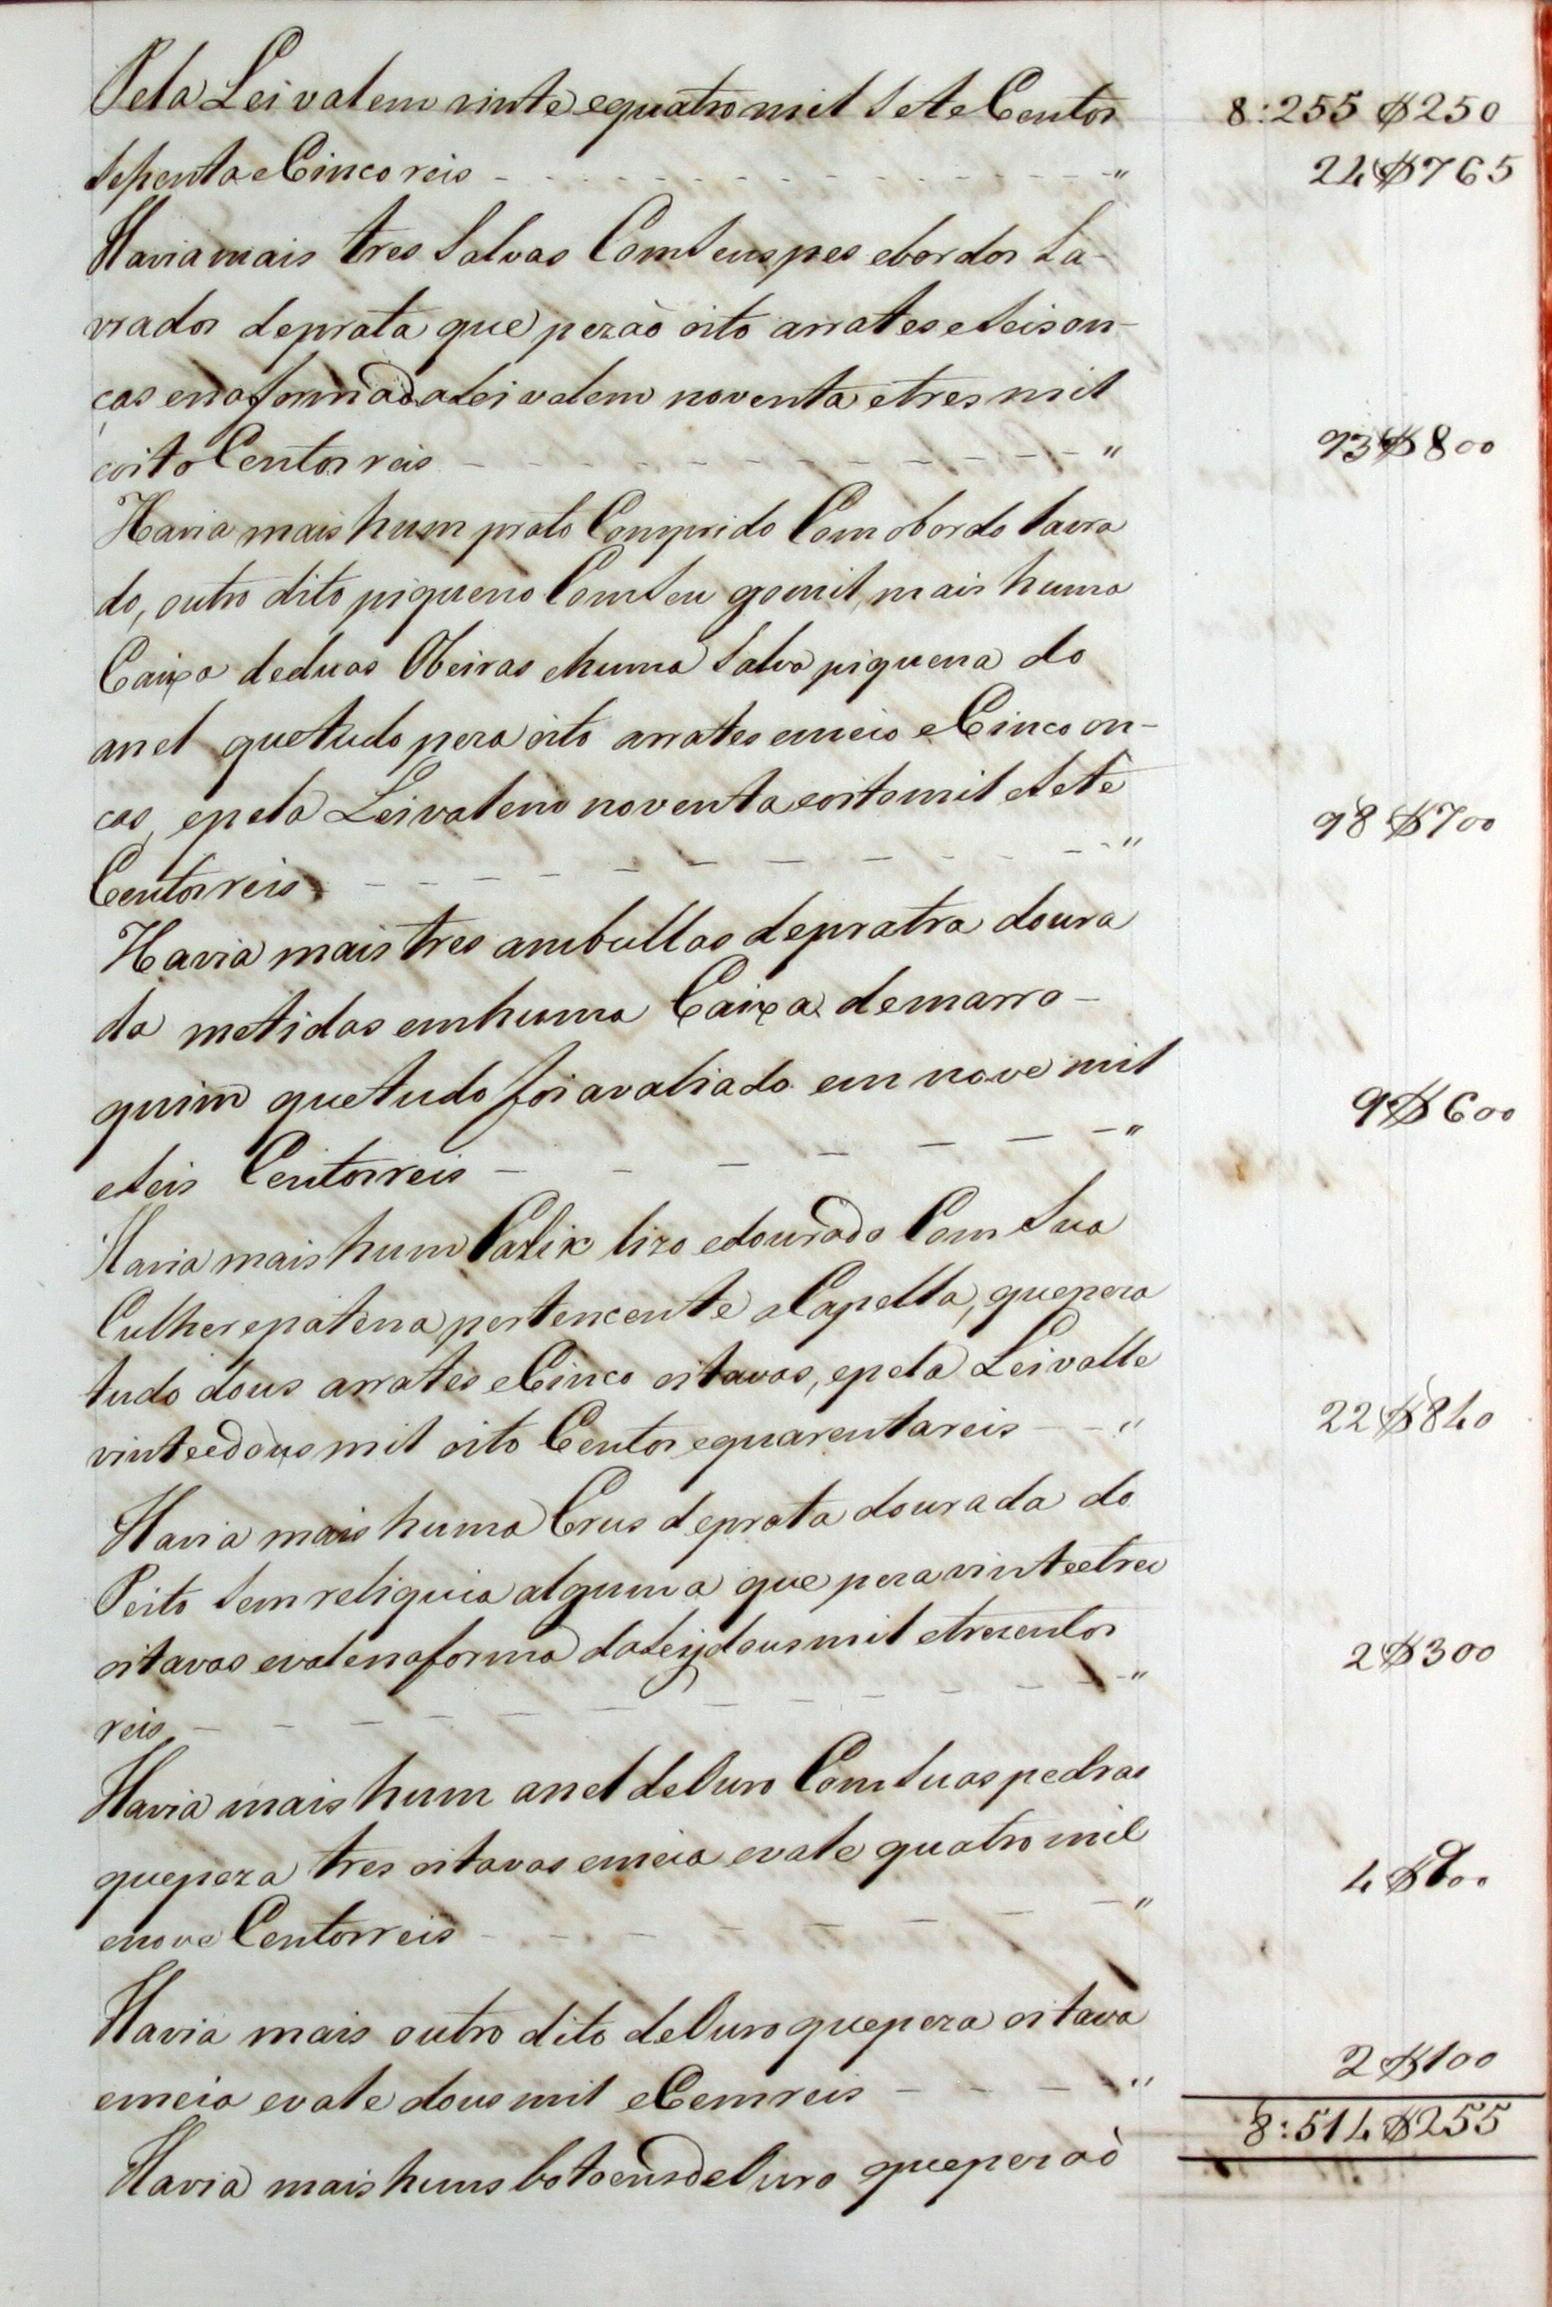 Pela Lei valem vinte equatro mil Sete Centos 8:255$250
Sessenta eCinco reis - - - - " 24$765
Havia mais tres Salvas Com Seus pes ebordos La-
vrados deprata que pezaõ oito arrates eSeis on-
ças enaforma daLei valem noventa etres mil
eoito Centos reis - - - - " 93$800
Havia mais hum prato Comprido Com obordo Lavra
do, outro dito piqueno Com Seu gomil, mais huma
Caixa deduas Obeiras ehuma Salva piquena do
anel quetudo peza oito arrates emeio eCinco on-
ças, epela Lei valem noventa eoito mil eSete 98$700
Centos reis - - - - "
Havia mais tres ambullas depratra doura
da metidas emhuma Caixa demarro-
quim quetudo foi avaliado em nove mil 9$600
eSeis Centos reis - - - - "
Havia mais hum Calix lizo edourado Com Sua
Culher epatena pertencente aCapella, quepeza
tudo dous arrates eCinco oitavas, epela Lei valle
vinteedous mil oito Centos equarenta reis - - " 22$840
Havia mais huma Crus deprata dourada do
Peito Sem reliquia alguma que peza vinteetres
oitavas evalenaforma daLeij dous mil etrezentos 2$300
reis - - - - "
Havia mais hum anel deOuro Com Suas pedras
quepeza tres oitavas emeia evale quatro mil 4$900
enove Centos reis - - - - "
Havia mais outro dito deOuro quepeza oitava
emeia evale dous mil eCem reis - - - - " 2$100
8:514$255
Havia mais huns botoens deOuro quepezaõ